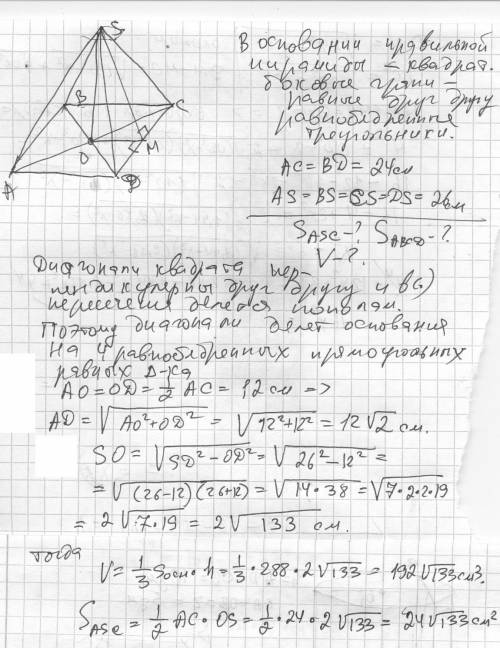 S
B
C
O
M
A
D
В основании правильной
пирамиды – квадрат.
боковые грани –
равные друг другу
равнобедренные
треугольники.
AC = BD = 24 см
AS = BS = CS = DS = 26 см
S_ASC – ? S_ABCD – ?
V – ?
Диагонали квадрата пер-
пендикулярны друг другу и в (·)
пересечения делятся пополам.
Поэтому диагонали делят основания
на 4 равнобедренных прямоугольных
равных Δ-ка
AO = OD = 1/2 AC = 12 см =>
AD = √(AO² + OD²) = √(12² + 12²) = 12√2 см.
SO = √(SD² – OD²) = √(26² – 12²) =
= √((26–12)(26+12)) = √(14·38) = √(7·2·2·19)
= 2√(7·19) = 2√133 см.
тогда
V = 1/3 Sосн · h = 1/3 · 288 · 2√133 = 192√133 см³.
S_ASC = 1/2 AC · OS = 1/2 · 24 · 2√133 = 24√133 см²